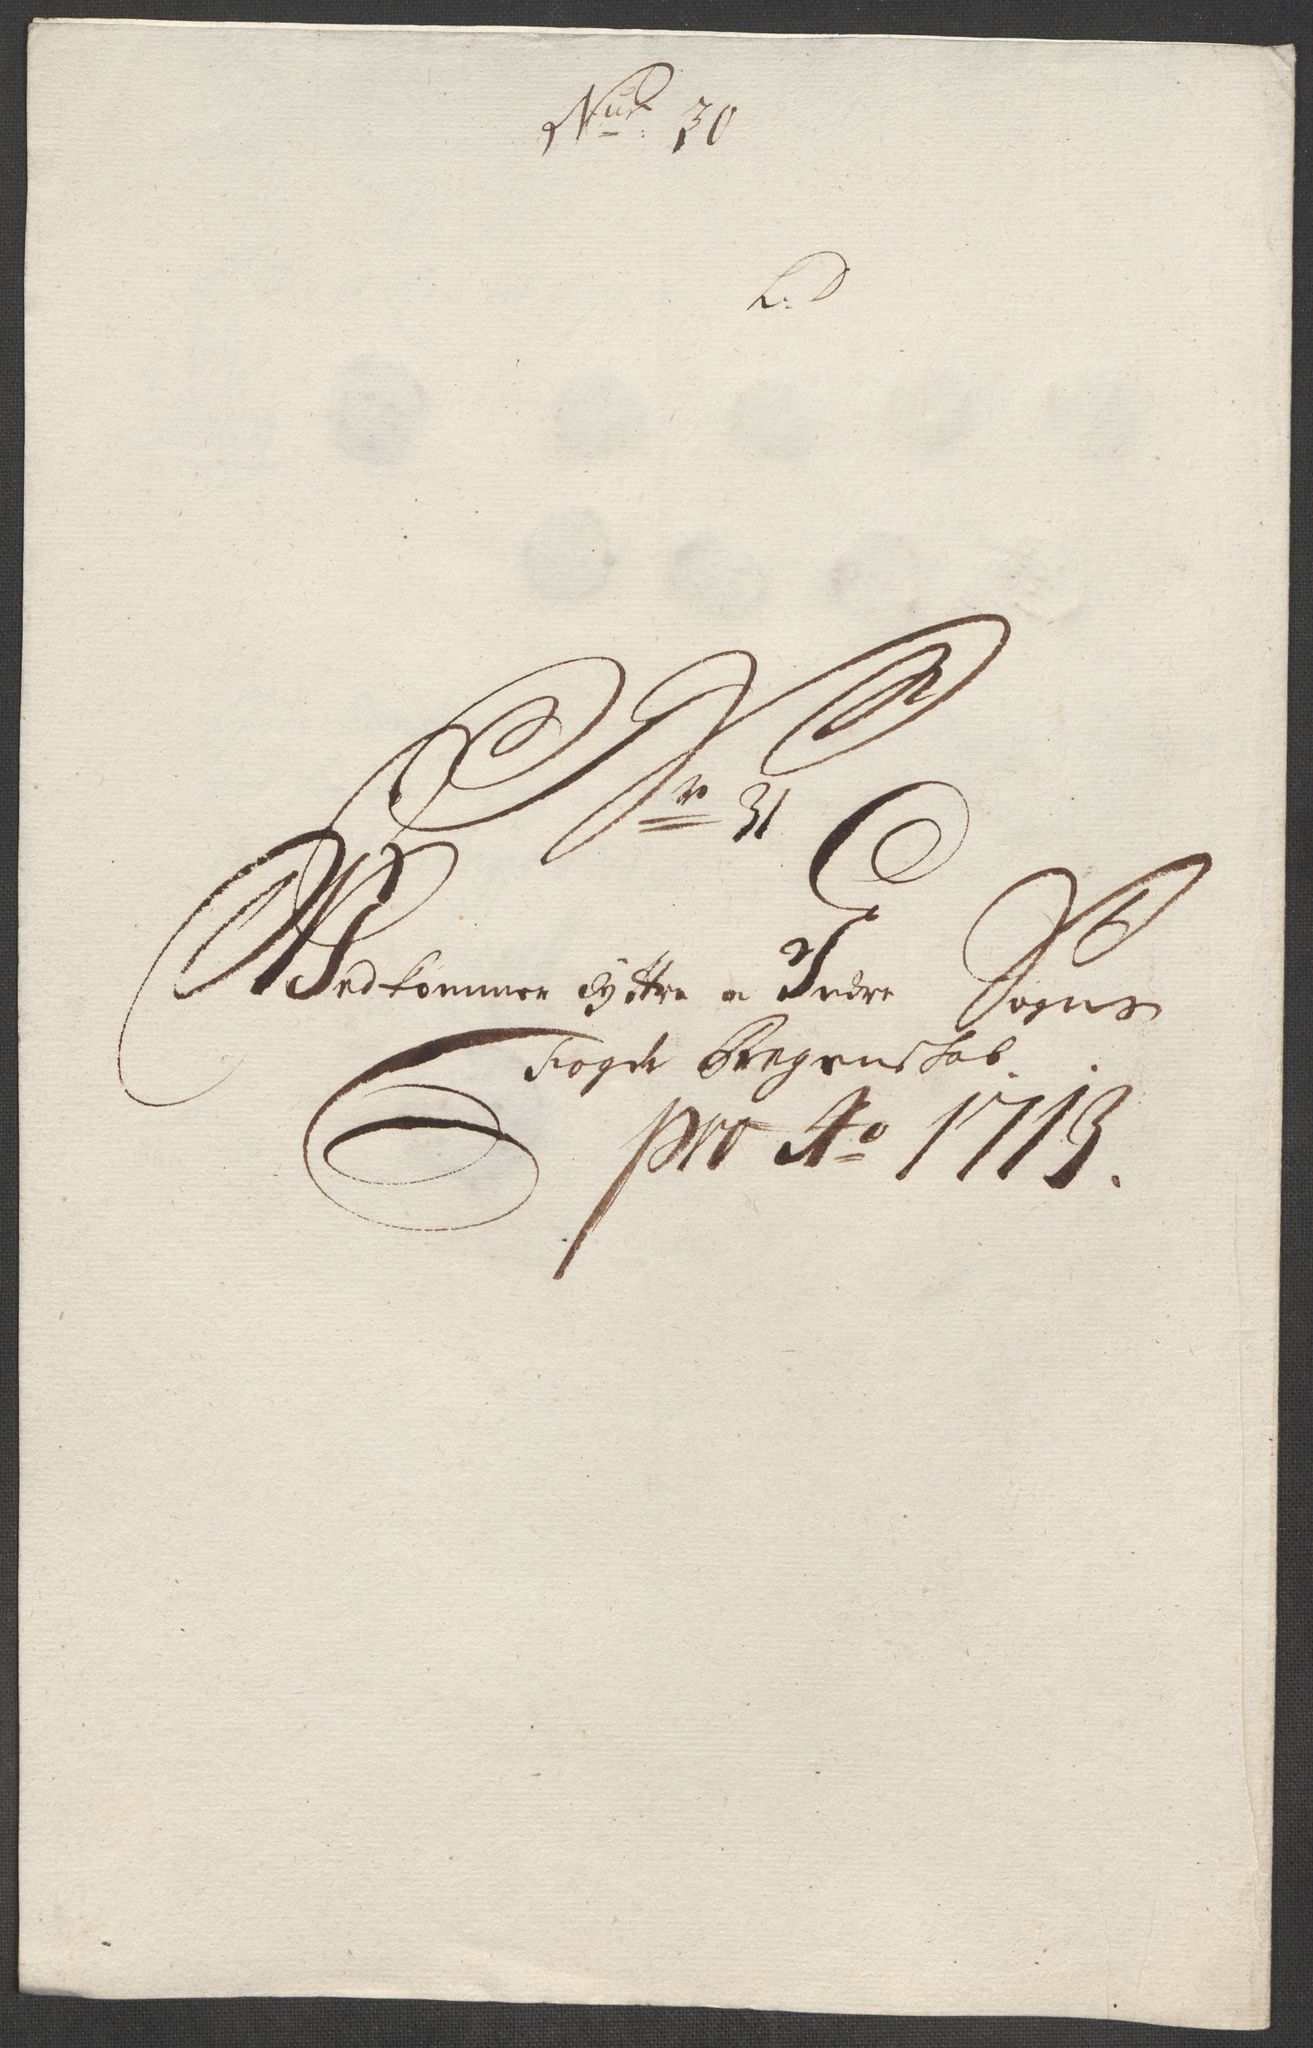 Num: 30
L: D
No 31
Vedkommer Yttre og Indre Sogns
Fogde Regenskab.
pro Ao 1713.